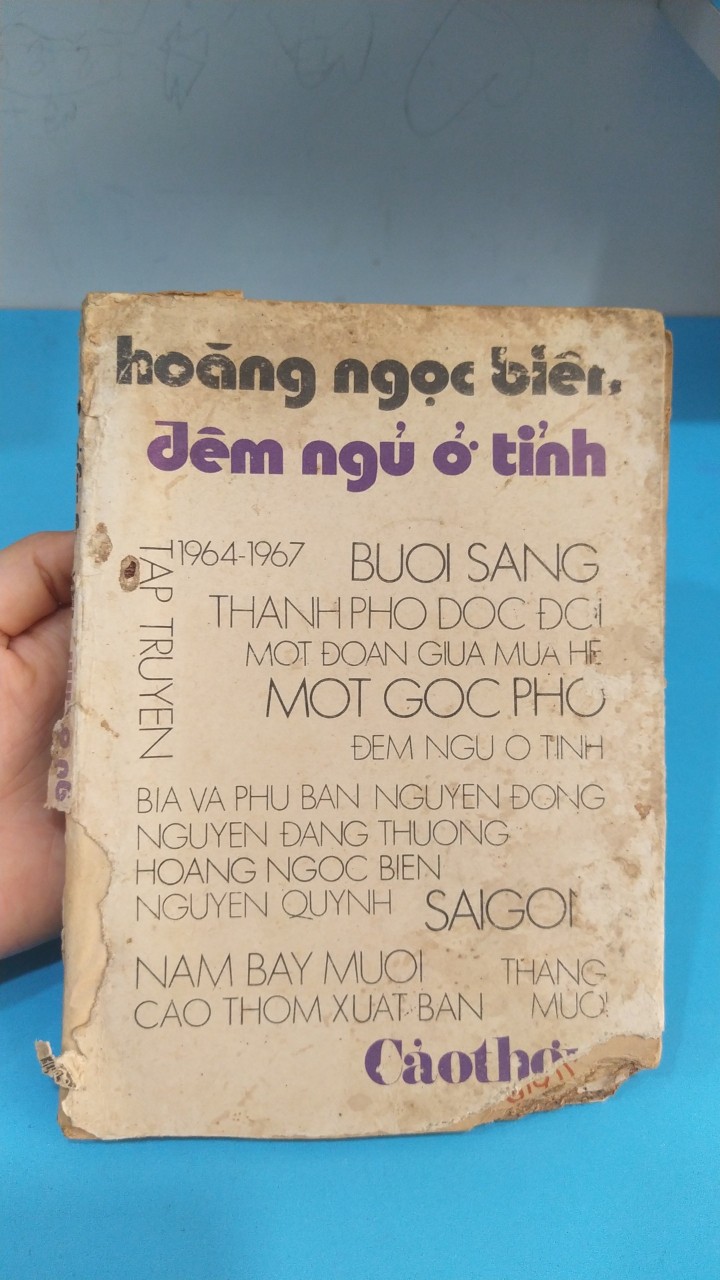 hoàng ngọc biên,
đêm ngủ ở tỉnh
TAP TRUYEN
1964-1967
BUOI SANG
THANH PHO DOC ĐOI
MOT ĐOAN GIUA MUA HE
MOT GOC PHO
ĐEM NGU O TINH
BIA VA PHU BAN NGUYEN ĐONG
NGUYEN ĐANG THUONG
HOANG NGOC BIEN
NGUYEN QUYNH
SAIGON
NAM BAY MUOI THANG
CAO THOM XUAT BAN MUOI
Cảothơm